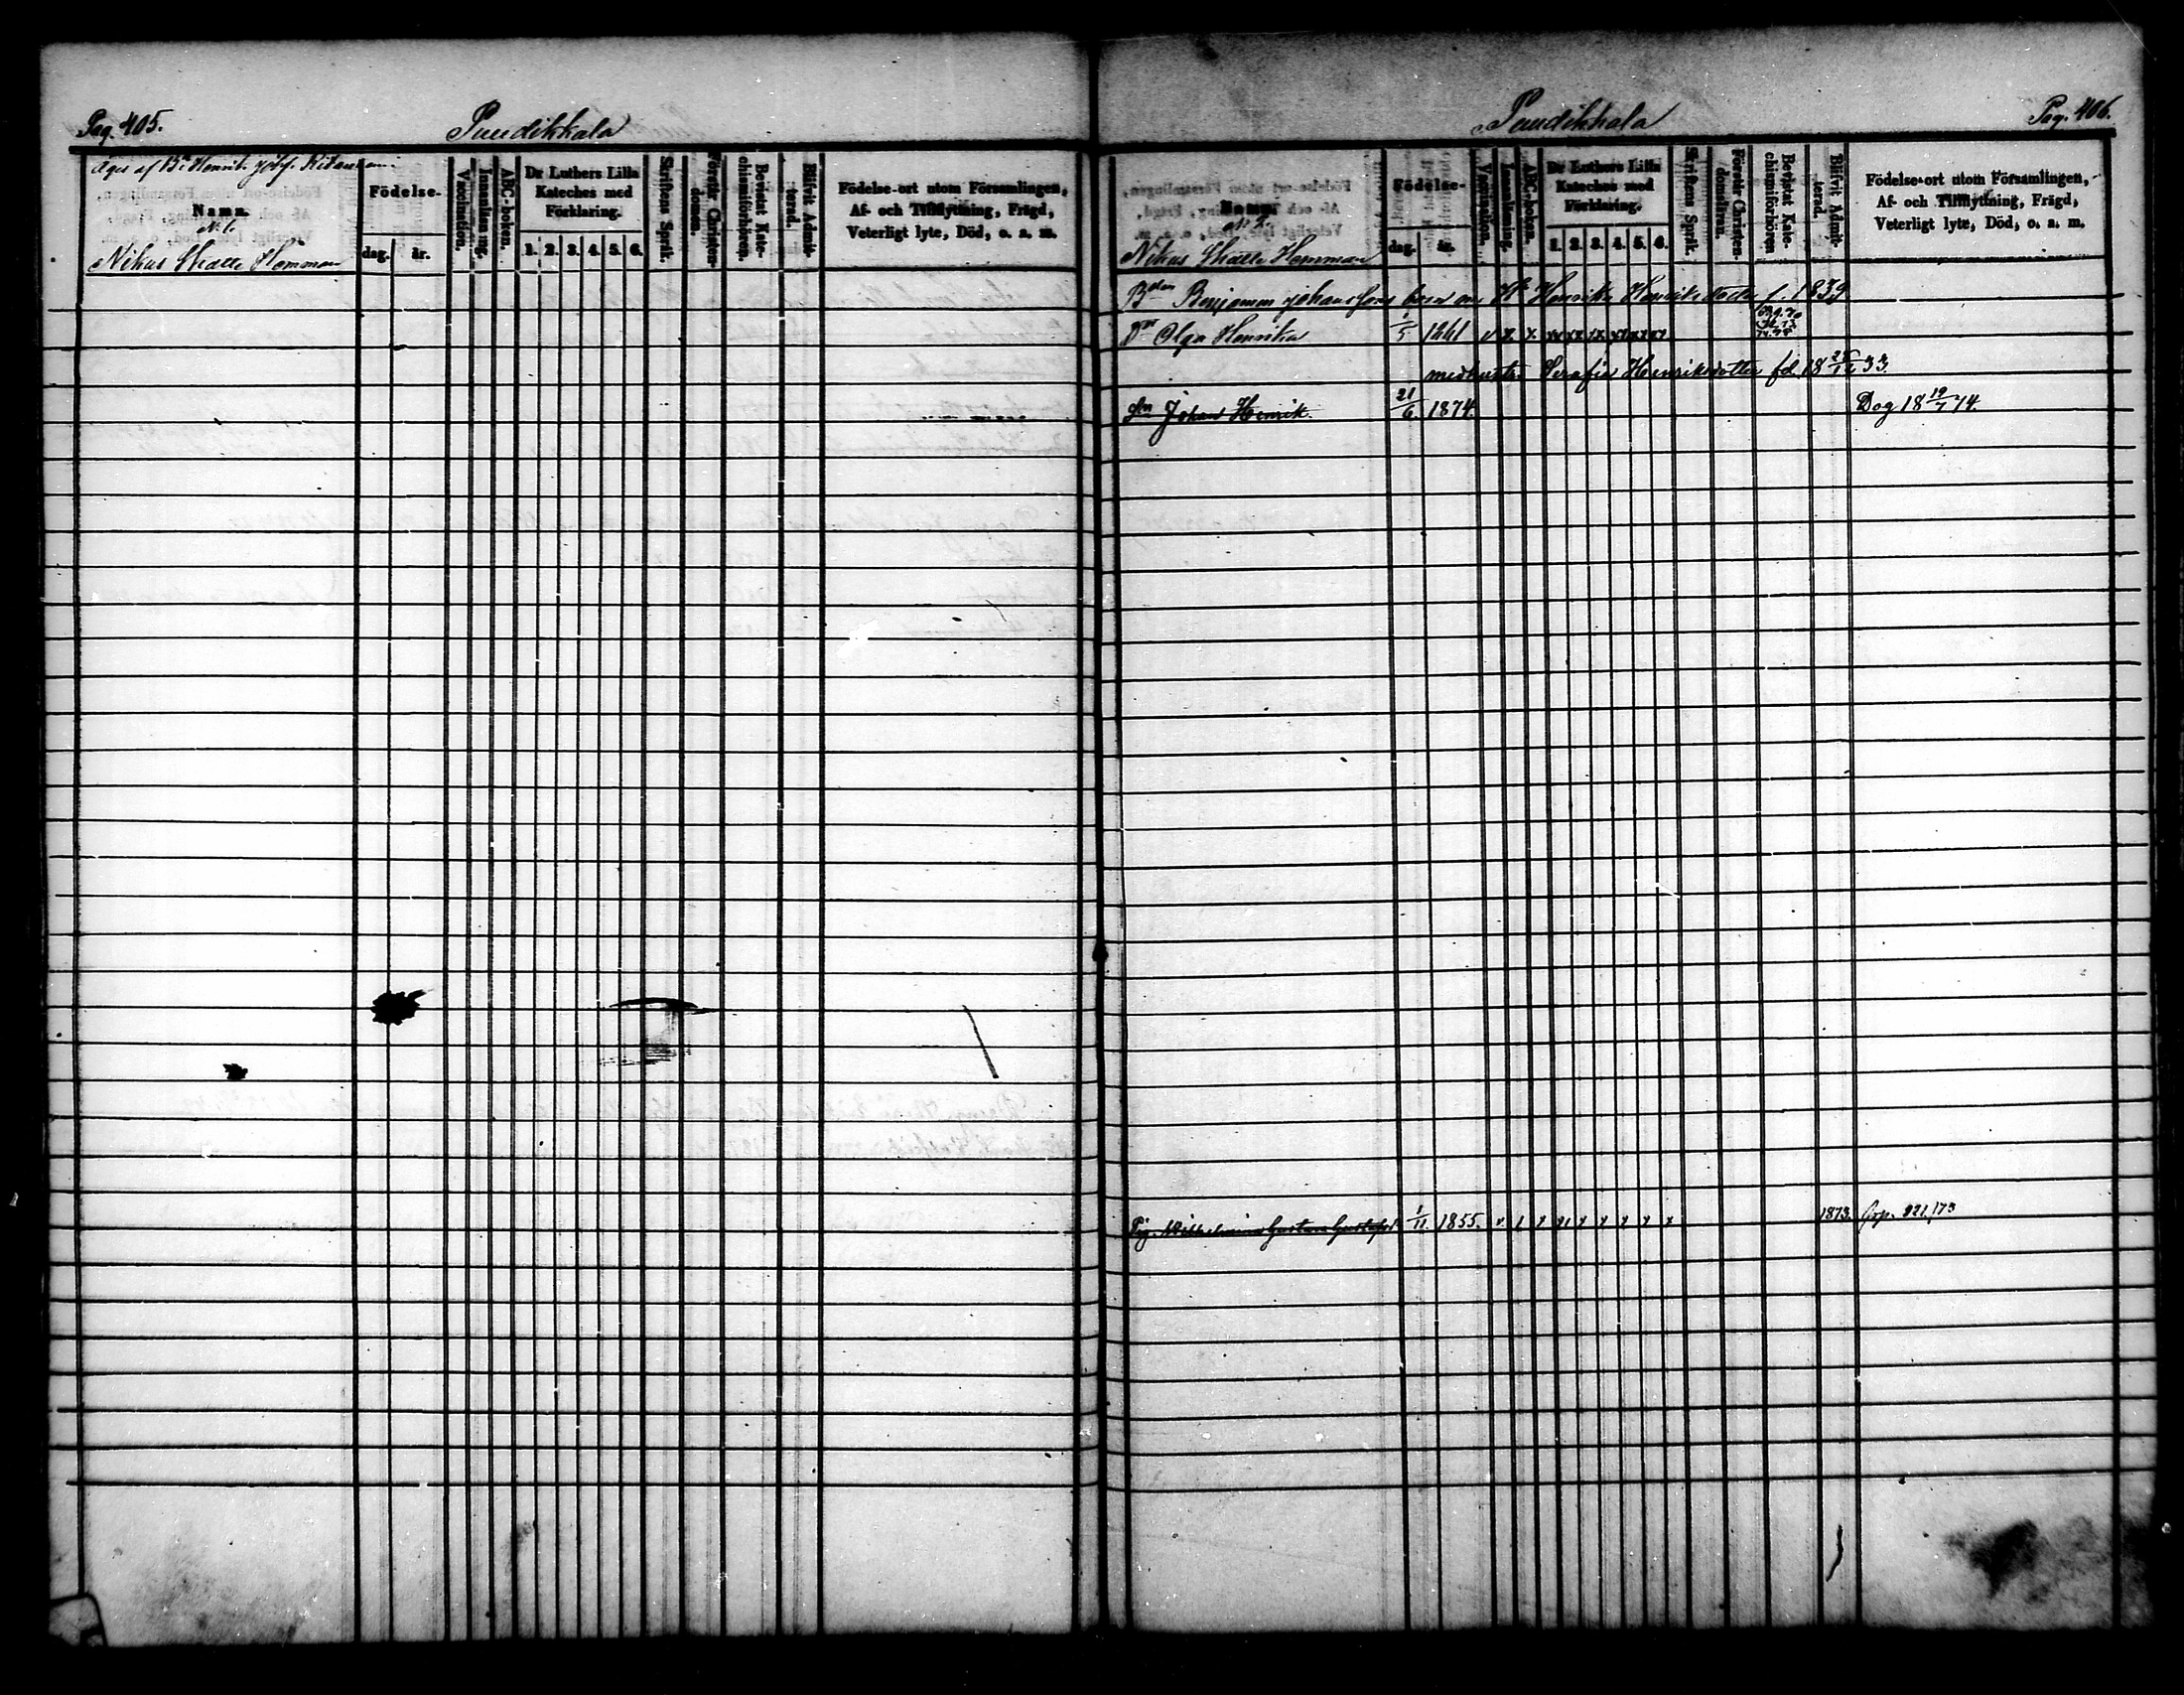 Pag. 405.
Pundikkala
Namn.
Nikus Skatte Hemman
Födelse-
dag.
år.
Vaccination.
Innanläsning.
ABC-boken.
Dr Luthers Lilla
Kateches med
Förklaring.
1. 2. 3. 4. 5. 6.
Skriftens Språk.
Förstår Christen-
domen.
Bevistat Kate-
chismiförhören.
Blifvit Admit-
terad.
Födelse-ort utom Församlingen,
Af- och Tillflyttning, Frägd,
Veterligt lyte, Död, o. a. m.
Pundikkala
Pag. 406.
Namn
Nikus Skatte Hemman
Födelse-
dag.
år.
Vaccination.
Innanläsning.
ABC-boken.
Dr Luthers Lilla
Kateches med
Förklaring.
1. 2. 3. 4. 5. 6.
Skriftens Språk.
Förstår Christen-
domsläran.
Bevistat Kate-
chismiförhören
Blifvit Admit-
terad.
Födelse-ort utom Församlingen,
Af- och Tillflyttning, Frägd,
Veterligt lyte, Död, o. a. m.
Benjamin Johansson Henrika Henriksdotter f. 1839
Dr Olga Henrika 1861
Serafia Henriksdotter fd. 18 33
Sn Johan Henrik 21/6. 1874. Dog 18 19/7 74.
Pig. Wilhelmina Gustava Gustafsd 1/11 1855. 1873.